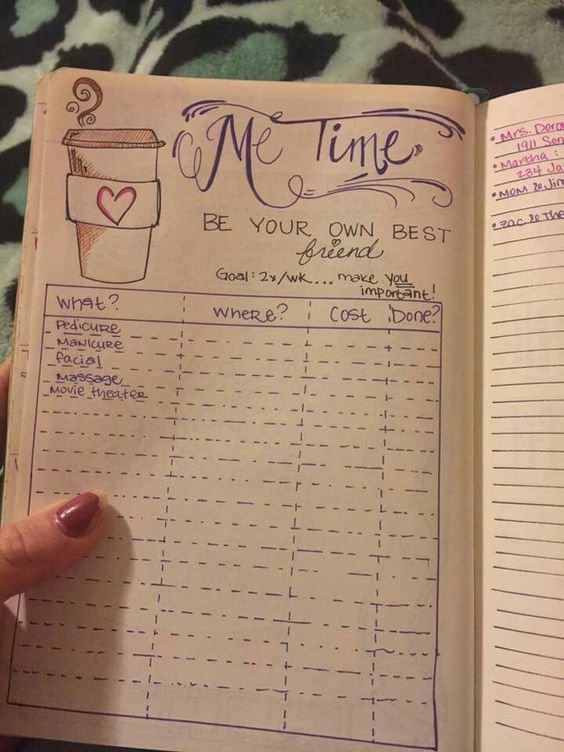 Me Time
BE YOUR OWN BEST
friend
Goal: 2x/wk... make you
important!
What? Where? Cost Done?
Pedicure
Manicure
facial
Massage
Movie theater
• Mrs.
1911
• Martha:
234
• Mom & Jim
• Zac & The